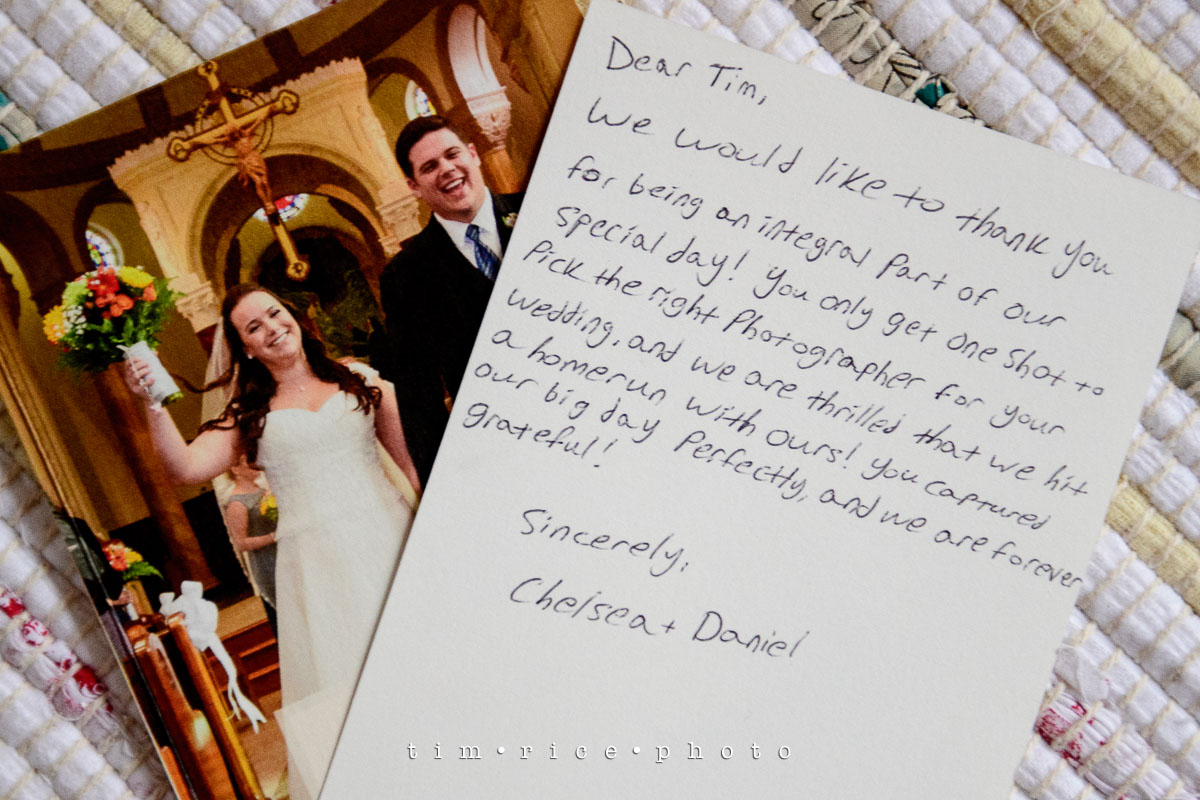 Dear Tim,
We would like to thank you
for being an integral part of our
special day! You only get one shot to
pick the right photographer for your
wedding, and we are thrilled that we hit
a homerun with ours! You captured
our big day perfectly, and we are forever
grateful!
Sincerely,
Chelsea + Daniel
tim•rice•photo